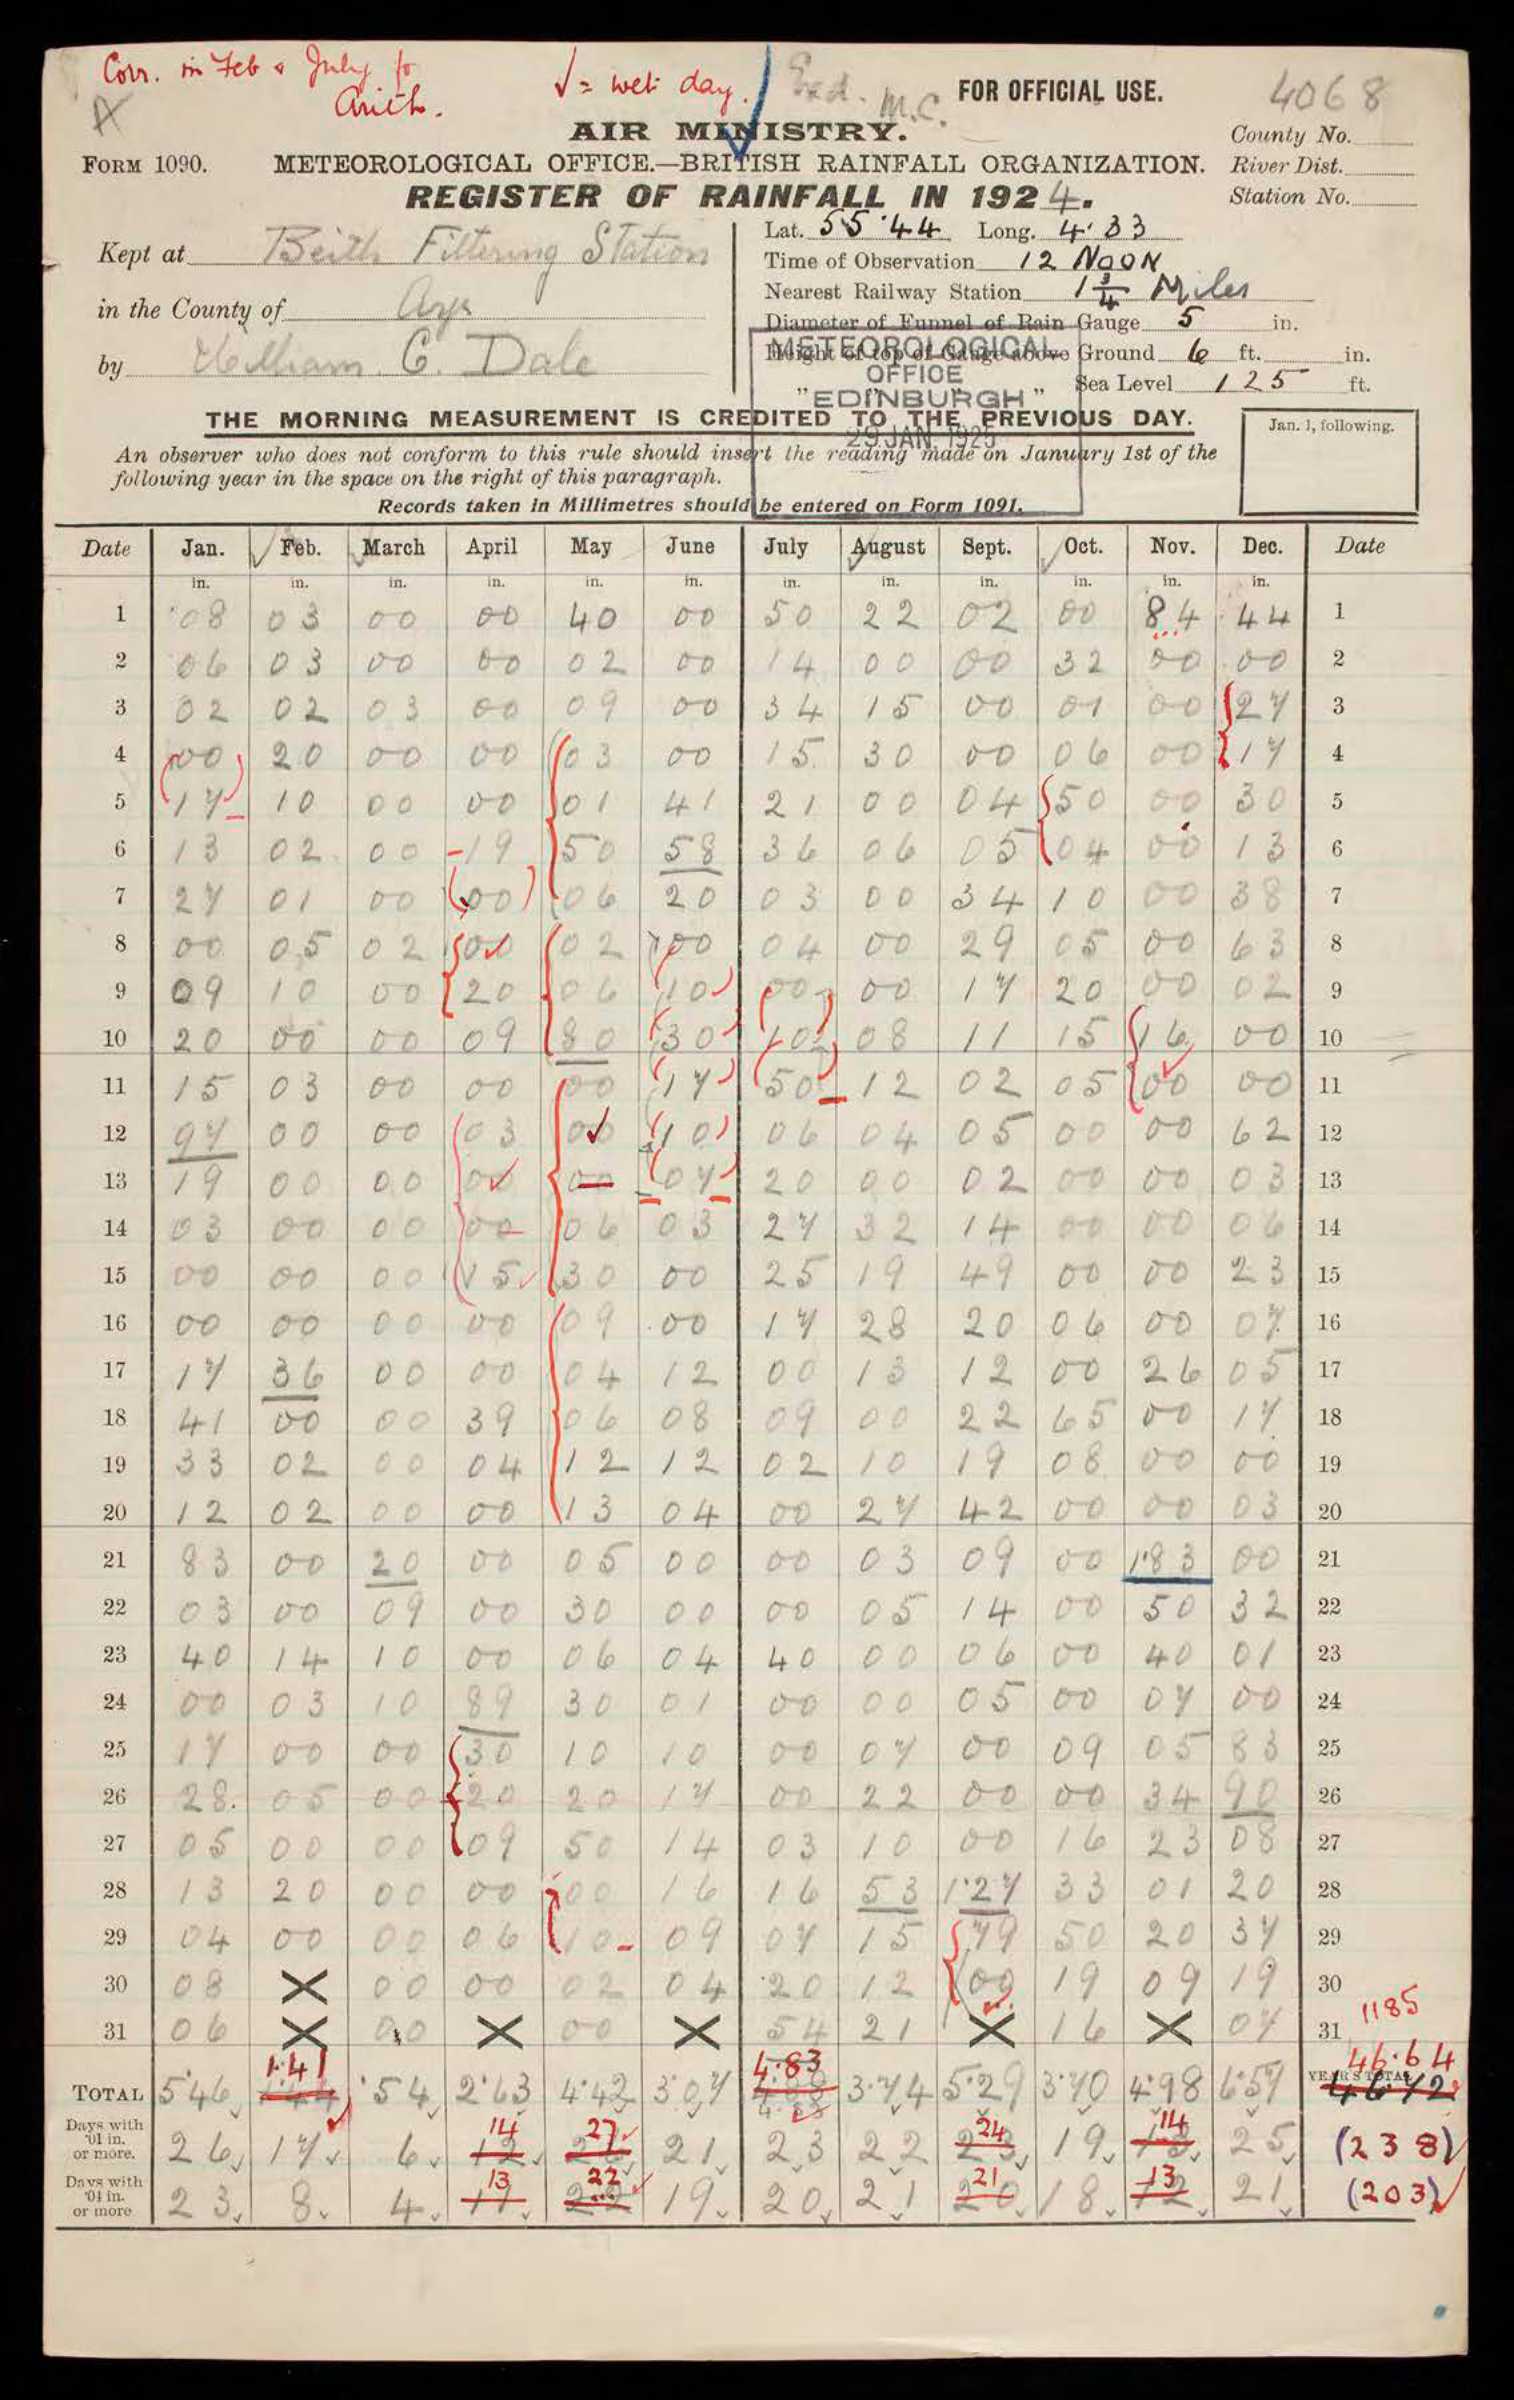 Corr. in Feb & July fo
Arith.
√ = wet day.
Exd. M.C.
FOR OFFICIAL USE.
4068
AIR MINISTRY.
County No.
FORM 1090. METEOROLOGICAL OFFICE.—BRITISH RAINFALL ORGANIZATION. River Dist.
REGISTER OF RAINFALL IN 1924. Station No.
Kept at Beith Filtering Station
in the County of Ayr
by William C. Dale
Lat. 55·44 Long. 4·33
Time of Observation 12 Noon
Nearest Railway Station 1 3/4 Miles
Diameter of Funnel of Rain Gauge 5 in.
Height of top of Gauge above Ground 6 ft. in.
" " Sea Level 125 ft.
METEOROLOGICAL
OFFICE
EDINBURGH
29 JAN. 1925
THE MORNING MEASUREMENT IS CREDITED TO THE PREVIOUS DAY.
Jan. 1, following.
An observer who does not conform to this rule should insert the reading made on January 1st of the
following year in the space on the right of this paragraph.
Records taken in Millimetres should be entered on Form 1091.
Date Jan. Feb. March April May June July August Sept. Oct. Nov. Dec. Date
in. in. in. in. in. in. in. in. in. in. in. in.
1 ·08 03 00 00 40 00 50 22 02 00 84 44 1
2 06 03 00 00 02 00 14 00 00 32 00 00 2
3 02 02 03 00 09 00 34 15 00 01 00 27 3
4 00 20 00 00 03 00 15 30 00 06 00 17 4
5 17 10 00 00 01 41 21 00 04 50 00 30 5
6 13 02 00 19 50 58 36 06 05 04 00 13 6
7 27 01 00 00 06 20 03 00 34 10 00 38 7
8 00 05 02 00 02 00 04 00 29 05 00 63 8
9 09 10 00 20 06 10 00 00 17 20 00 02 9
10 20 00 00 09 80 30 10 08 11 15 16 00 10
11 15 03 00 00 00 17 50 12 02 05 00 00 11
12 97 00 00 03 00 10 06 04 05 00 00 62 12
13 19 00 00 00 00 07 20 00 02 00 00 03 13
14 03 00 00 00 06 03 27 32 14 00 00 06 14
15 00 00 00 15 30 00 25 19 49 00 00 23 15
16 00 00 00 00 09 00 17 28 20 06 00 07 16
17 17 36 00 00 04 12 00 13 12 00 26 05 17
18 41 00 00 39 06 08 09 00 22 65 00 17 18
19 33 02 00 04 12 12 02 10 19 08 00 00 19
20 12 02 00 00 13 04 00 27 42 00 00 03 20
21 83 00 20 00 05 00 00 03 09 00 1·83 00 21
22 03 00 09 00 30 00 00 05 14 00 50 32 22
23 40 14 10 00 06 04 40 00 06 00 40 01 23
24 00 03 10 89 30 01 00 00 05 00 07 00 24
25 17 00 00 30 10 10 00 07 00 09 05 83 25
26 28 05 00 20 20 17 00 22 00 00 34 90 26
27 05 00 00 09 50 14 03 10 00 16 23 08 27
28 13 20 00 00 00 16 16 53 1·27 33 01 20 28
29 04 00 00 06 10 09 07 15 79 50 20 37 29
30 08 X 00 00 02 04 20 12 00 19 09 19 30
31 06 X 00 X 00 X 54 21 X 16 X 07 31
1185
1·41 4·83 46·64
TOTAL 5·46 1·44 ·54 2·63 4·42 3·07 3·74 5·29 3·70 4·98 6·57 YEAR'S TOTAL 46·72
14 27 24 14
Days with ·01 in. or more. 26 17 6 12 21 23 22 23 19 13 25 (238)
13 22 21 13
Days with ·04 in. or more 23 8 4 11 19 20 21 20 18 12 21 (203)